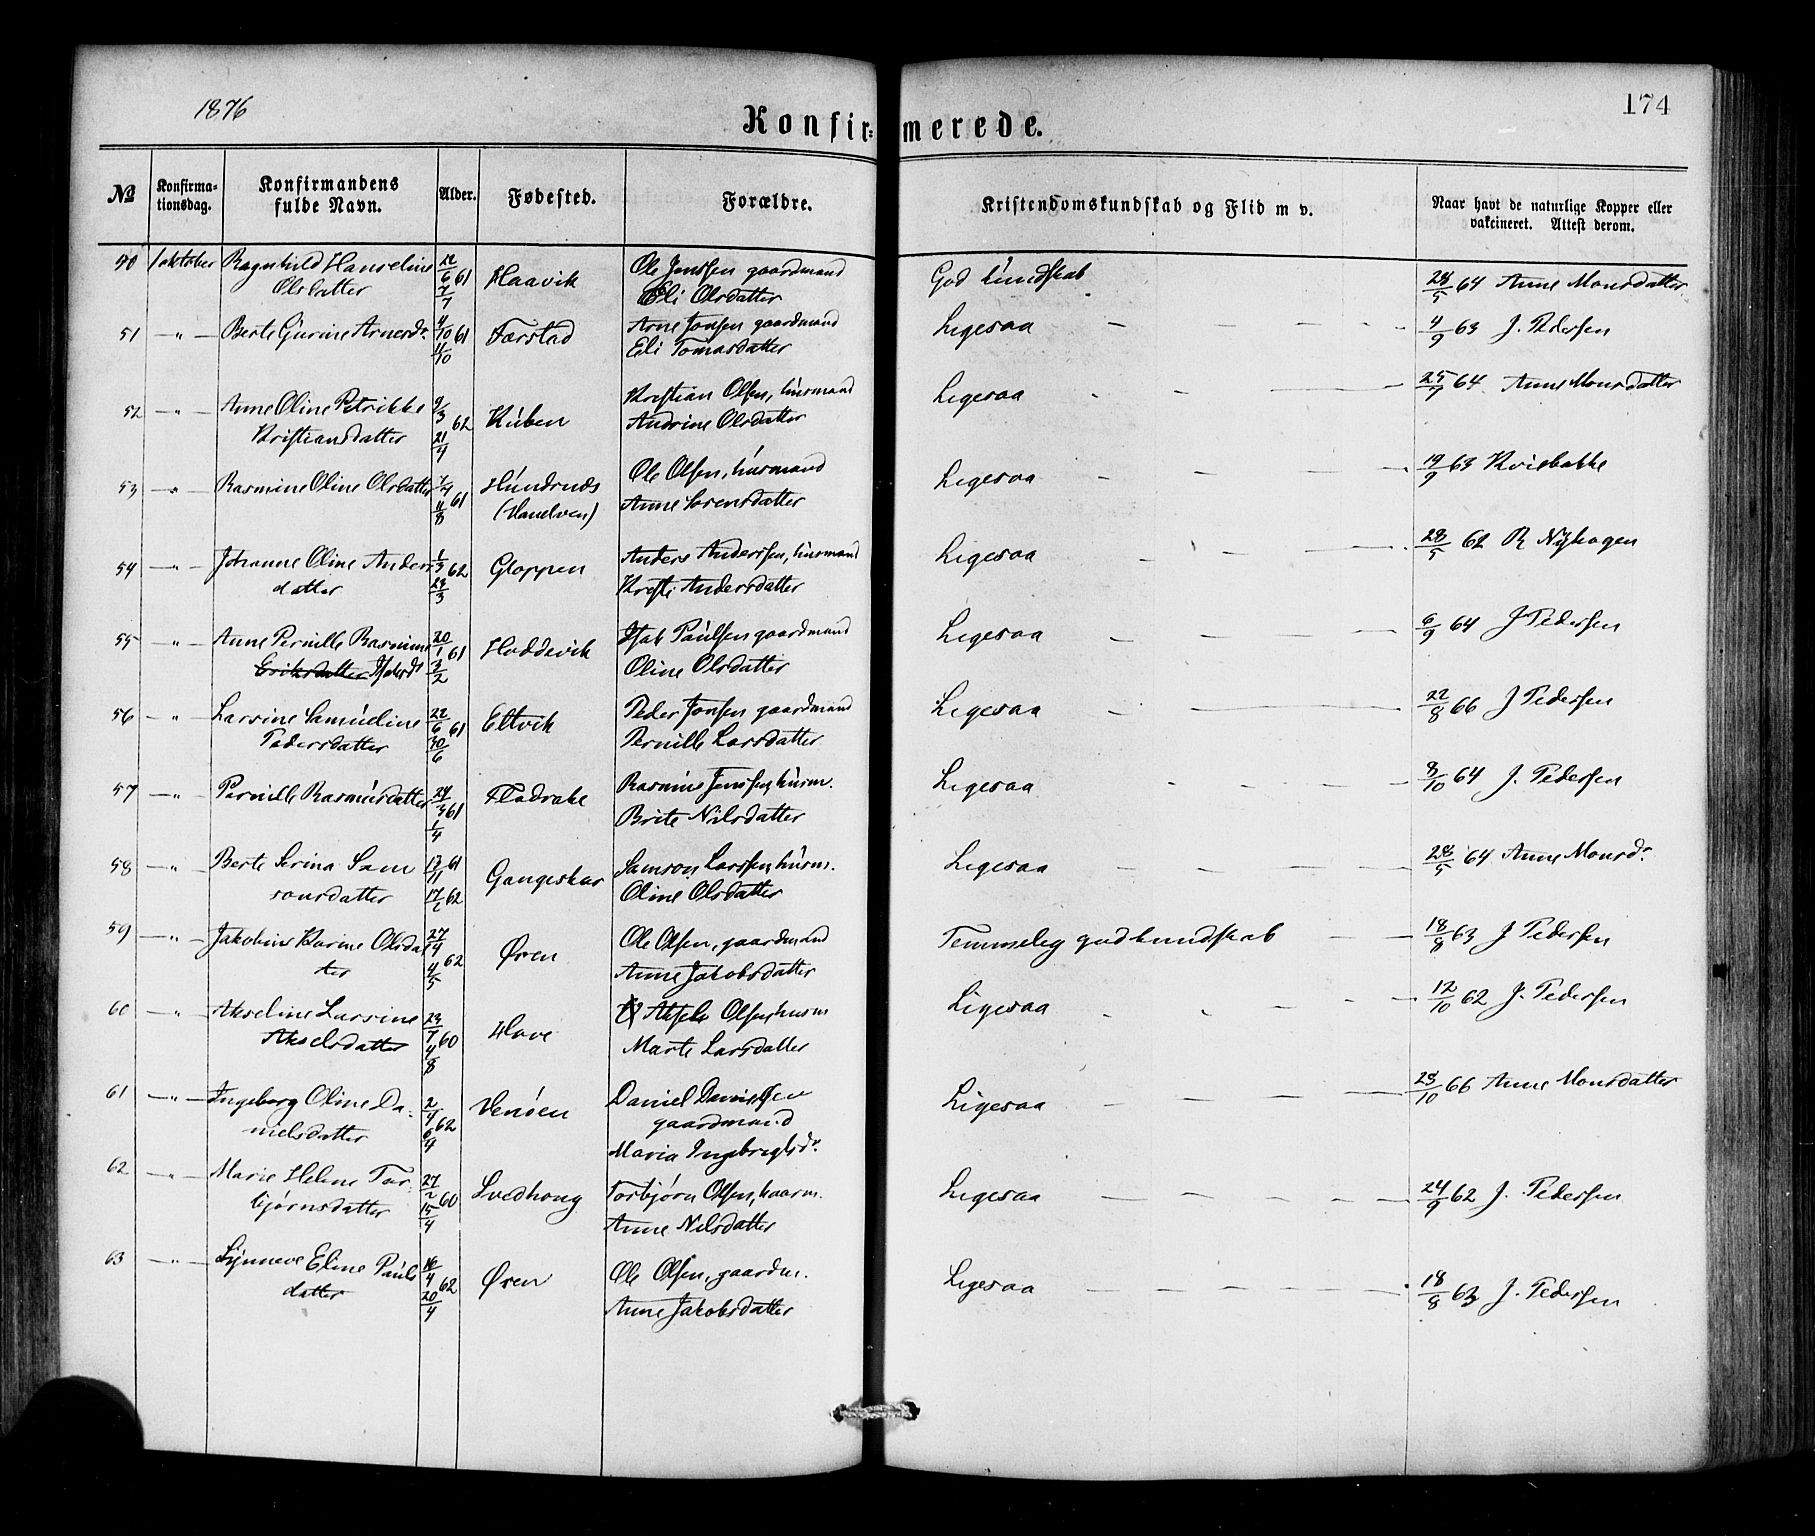 1876
174
Konfir=merede.
№ Konfirma-tionsdag. Konfirmandens fulde Navn. Alder. Fødested. Forældre. Kristendomskundskab og Flid m v. Naar havt de naturlige Kopper eller vakcineret. Attest derom.
50 1 oktober Ragnhild Hanseline 22/6 61 Haavik Ole Jenssen gaardmand God kundskab 28/5 64 Anne Monsdatter
Olsdatter 7/7 Eli Olsdatter
51 —"— Berte Gjurine Arnesdr 4/10 61 Færstad Arne Jonsen gaardmand Ligesaa 4/9 63 J. Pedersen
11/10 Eli Tomasdatter
52 —"— Anne Oline Petrikke 9/3 62 Kuben Kristian Olsen, husmand Ligesaa 25/7 64 Anne Monsdatter
Kristiansdatter 21/4 Andrine Olsdatter
53 —"— Rasmine Oline Olsdatter 61 Hundsnæs Ole Olsen, husmand Ligesaa 19/9 63 Kvisbakke
11/8 Anne Sorensdatter
54 —"— Johanne Oline Anders 1/3 62 Gloppen Anders Anderssen, husmand Ligesaa 28/5 62 R Nyhagen
datter 23/3 Kristi Andersdatter
55 —"— Anne Pernille Rasmine 20/1 61 Hoddevik Isak Paulsen gaardmand Ligesaa 6/9 64 J Pedersen
Eriksdatter 2/2 Oline Olsdatter
56 —"— Larsine Samueline 22/6 61 Eltvik Peder Jonsen gaardmand Ligesaa 22/8 66 J Pedersen
Pedersdatter 30/6 Pernille Larsdatter
57 —"— Pernille Rasmusdatter 24/3 61 Fladrake Rasmus Jenssen, husm. Ligesaa 8/10 64 J. Pedersen
1/4 Brite Nilsdatter
58 —"— Berte Serina Sam 13/11 61 Gangeskar Samson Larssen husm. Ligesaa 28/5 64 Anne Monsdr
sonsdatter 62 Oline Olsdatter
59 —"— Jakobine Karine Olsdat 27/4 62 Øren Ole Olsen, gaardmand Temmelig god kundskab 18/8 63 J Pedersen
ter 4/5 Anne Jakobsdatter
60 —"— Akseline Larsine 23/7 60 Hove Aksel Olsen husm Ligesaa 12/10 62 J. Pedersen
Akselsdatter 4/8 Marte Larsdatter
61 —"— Ingeborg Oline Da- 2/4 62 Venøen Daniel Danielsen Ligesaa 23/10 66 Anne Monsdatter
nielsdatter 6/4 gaardmand
Maria Ingebregtsdr
62 —"— Marie Helene Tor 27/2 60 Torbjørn Olsen, Ligesaa 24/9 62 J. Pedersen
bjørnsdatter 15/4 Anne Nilsdatter
63 —"— Synneve Eline Pauls 16/4 62 Øren Ole Olsen, gaardm. Ligesaa 18/8 63 J. Pedersen
datter 20/4 Anne Jakobsdatter